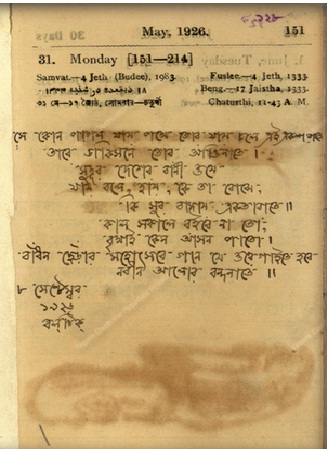 May, 1926.
151
31. Monday [151—214]
Samvat—4 Jeth (Budee), 1983.
Fuslee—4 Jeth, 1333.
Beng.—17 Jaistha, 1333.
৩১ মে—১৭ জ্যৈষ্ঠ, সোমবার—চতুর্থী
Chaturthi, 11-43 A. M.
সে কোন পাগল যায় পথে তোর যায় চলে এই একলা রাতে
তারে ডাকিসনে তোর আঙিনাতে।
সুদূর দেশের বাণী ওযে
যায় বলে, হায়, কে তা বোঝে;
কি সুর বাজায় একতারাতে॥
কাল সকালে রইবে না তো,
বৃথাই কেন আসন পাতো।
বাঁধন ছেঁড়ার মহোৎসবে গান যে ওরে গাইতে হবে
নবীন আলোর বন্দনাতে॥
৮ সেপ্টেম্বর
১৯২৬